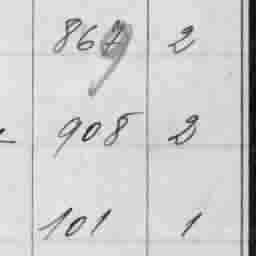 869 2
908 2
101 1